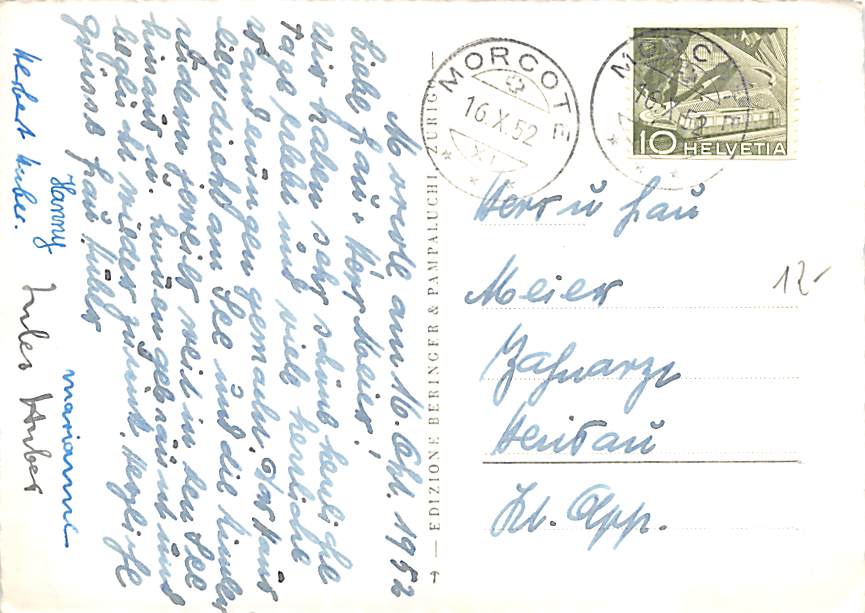 Morcote am 16. Okt. 1952
Liebe Frau & Herr Meier!
Wir haben sehr schöne herrliche
Tage erlebt und viele herrliche
Wanderungen gemacht. Das Haus
liegt direkt am See und die Kinder
rudern jeweils weit in den See
hinaus u. braun gebrannt und
beglückt wieder zurück. Herzliche
Grüsse Frau Huber
Hanny
marianne
Herbert Huber.
Jules Huber
EDIZIONE BERINGER & PAMPALUCHI, ZURIGO
MORCOTE
16.X.52
XI
MORCOTE
16.X.52
10 HELVETIA
Herr u Frau
Meier
Zahnarzt
Herisau
Kt. App.
12.-